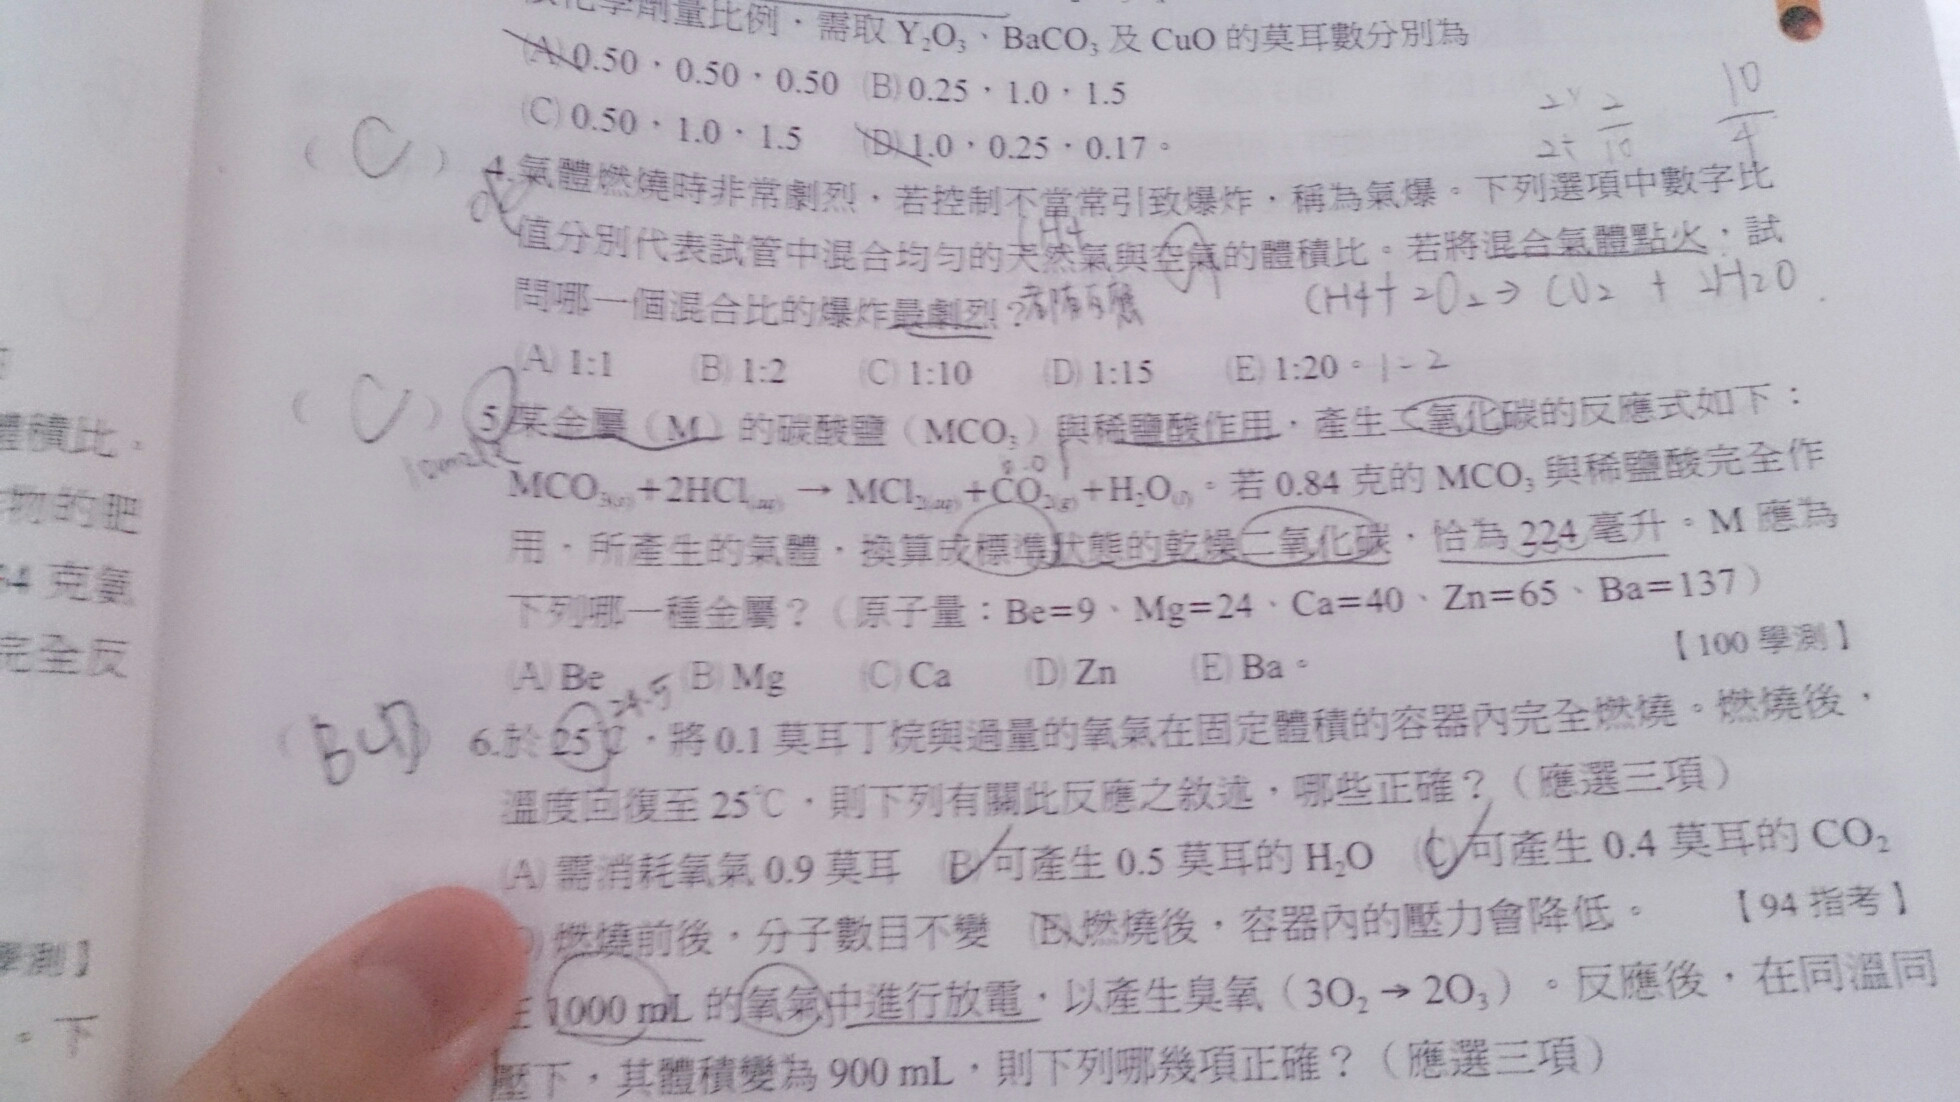 化學劑量比例，需取 Y₂O₃、BaCO₃ 及 CuO 的莫耳數分別為
(A) 0.50，0.50，0.50 (B) 0.25，1.0，1.5
(C) 0.50，1.0，1.5 (D) 1.0，0.25，0.17。
10
4
2
10
( C ) 4.氣體燃燒時非常劇烈，若控制不當常引致爆炸，稱為氣爆。下列選項中數字比
CH4
值分別代表試管中混合均勻的天然氣與空氣的體積比。若將混合氣體點火，試
問哪一個混合比的爆炸最劇烈？
CH4+2O2→CO2+2H2O
(A) 1:1 (B) 1:2 (C) 1:10 (D) 1:15 (E) 1:20。 1=2
( C ) 5.某金屬（M）的碳酸鹽（MCO₃）與稀鹽酸作用，產生二氧化碳的反應式如下：
MCO₃(s)+2HCl(aq) → MCl₂(aq)+CO₂(g)+H₂O(l)。若 0.84 克的 MCO₃ 與稀鹽酸完全作
用，所產生的氣體，換算成標準狀態的乾燥二氧化碳，恰為 224 毫升。M 應為
下列哪一種金屬？（原子量：Be=9、Mg=24、Ca=40、Zn=65、Ba=137）
【100 學測】
(A) Be (B) Mg (C) Ca (D) Zn (E) Ba。
24.5
6.於 25℃，將 0.1 莫耳丁烷與過量的氧氣在固定體積的容器內完全燃燒。燃燒後，
溫度回復至 25℃，則下列有關此反應之敘述，哪些正確？（應選三項）
(A) 需消耗氧氣 0.9 莫耳 (B) 可產生 0.5 莫耳的 H₂O (C) 可產生 0.4 莫耳的 CO₂
燃燒前後，分子數目不變 (E) 燃燒後，容器內的壓力會降低。 【94 指考】
在 1000 mL 的氧氣中進行放電，以產生臭氧（3O₂→2O₃）。反應後，在同溫同
壓下，其體積變為 900 mL，則下列哪幾項正確？（應選三項）
體積比，
物的肥
克氨
完全反
學測】
。下